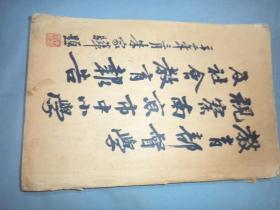 教育部督學
視察南京市中小學
及社會教育報告
朱家驊題